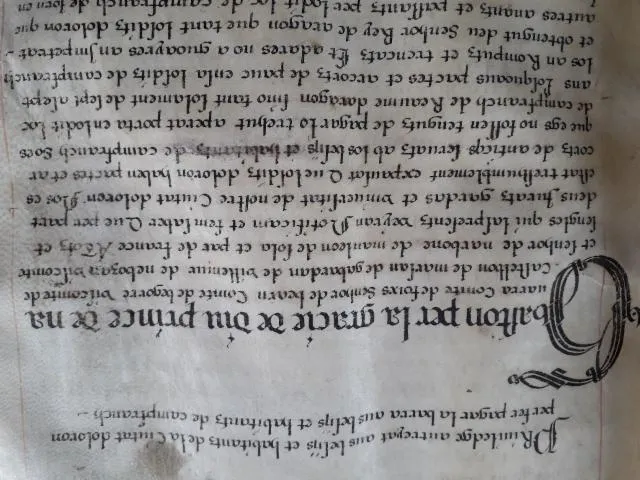 Priuiledge autreyat aus besijs et habitants dela Ciutat doloron
per fer pagar la barra aus besijs et habitants de campfranch
Gaston per la gracie de diu prince de na
uarra Comte de foixs Senhor de bearn Comte de begorre Viscomte de
Castelbon de marsan de gabardan de nebozan viscomte
et senhor de narbone de mauleon de sola et par de france A Totz et
sengles qui las presents veyran Notificam et fem saber Que per part
deus Juratz gardas et vniuersitat de nostre Ciutat doloron Nos es
estat treshumblement expausat Que losdits doloron haben pactes et ar
cortz de antiqs seruatz ab los besijs et habitants de campfranch Soes
que egs no fossen tenguts de pagar lo trehut aperat porta en lodit loc
de campfranch de Reaume daragon sino tant solament de sept a sept
ans losquaus pactes et acortz de pauc ensa losdits de campfranch
los an Romputz et trencatz Et adares no a guoayres an Impetrat
et obtengut deu Senhor Rey de aragon que tant doloron que
autres anantz et passantz per lodit loc de campfranch de